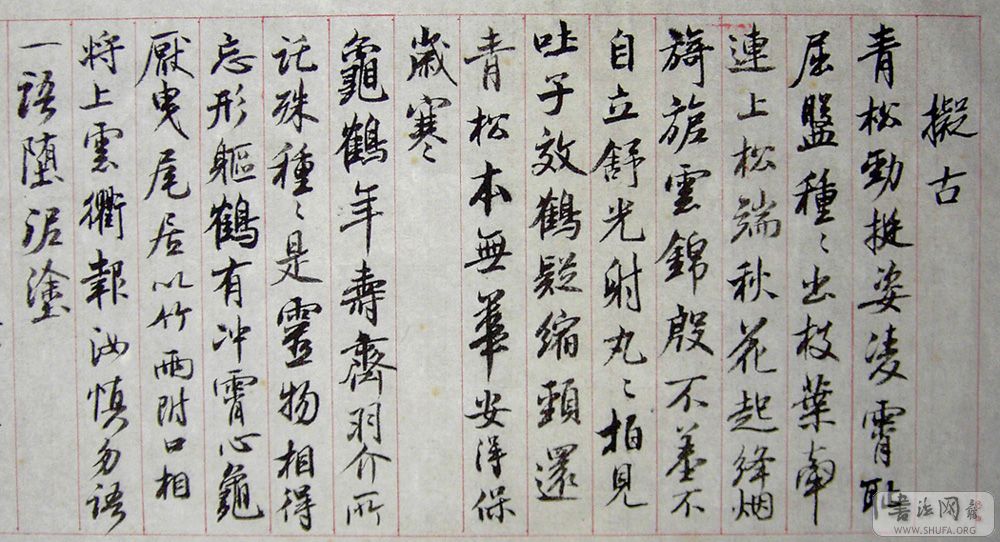 擬古
青松勁挺姿凌霄恥
屈盤種〻出枝葉牽
連上松端秋花起絳烟
旖旎雲錦殷不羞不
自立舒光射丸〻柏見
吐子效鶴疑縮頸還
青松本無華安得保
歲寒
龜鶴年壽齊羽介所
託殊種〻是靈物相得
忘形軀鶴有冲霄心龜
厭曳尾居以竹兩附口相
將上雲衢報汝慎勿語
一語墮泥塗
书法网
WWW.SHUFA.ORG